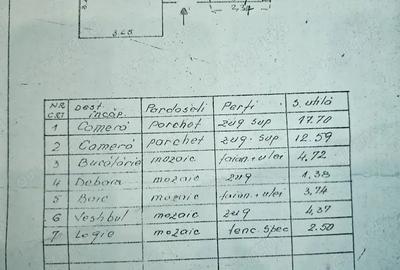 3.60
2.34
NR CRT Dest. încăp. Pardoseli Pereți S. utilă
1 Cameră parchet zug sup 17.70
2 Cameră parchet zug. sup 12.59
3 Bucătărie mozaic faian+ulei 4.72
4 Debara mozaic zug 1.38
5 Baie mozaic faian.+ulei 3.74
6 Vestibul mozaic zug 4,37
7 Logie mozaic tenc spec 2.50